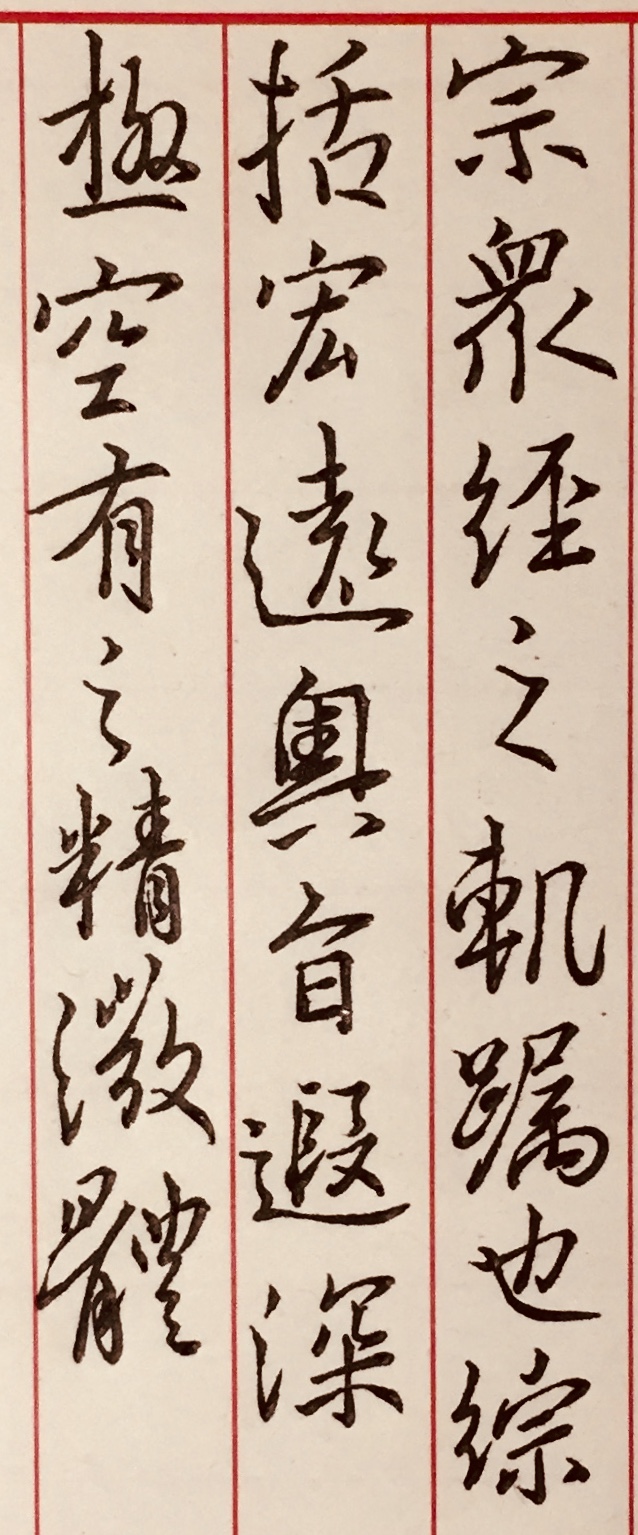 宗衆經之軌躅也綜
括宏遠奧旨遐深
極空有之精微體